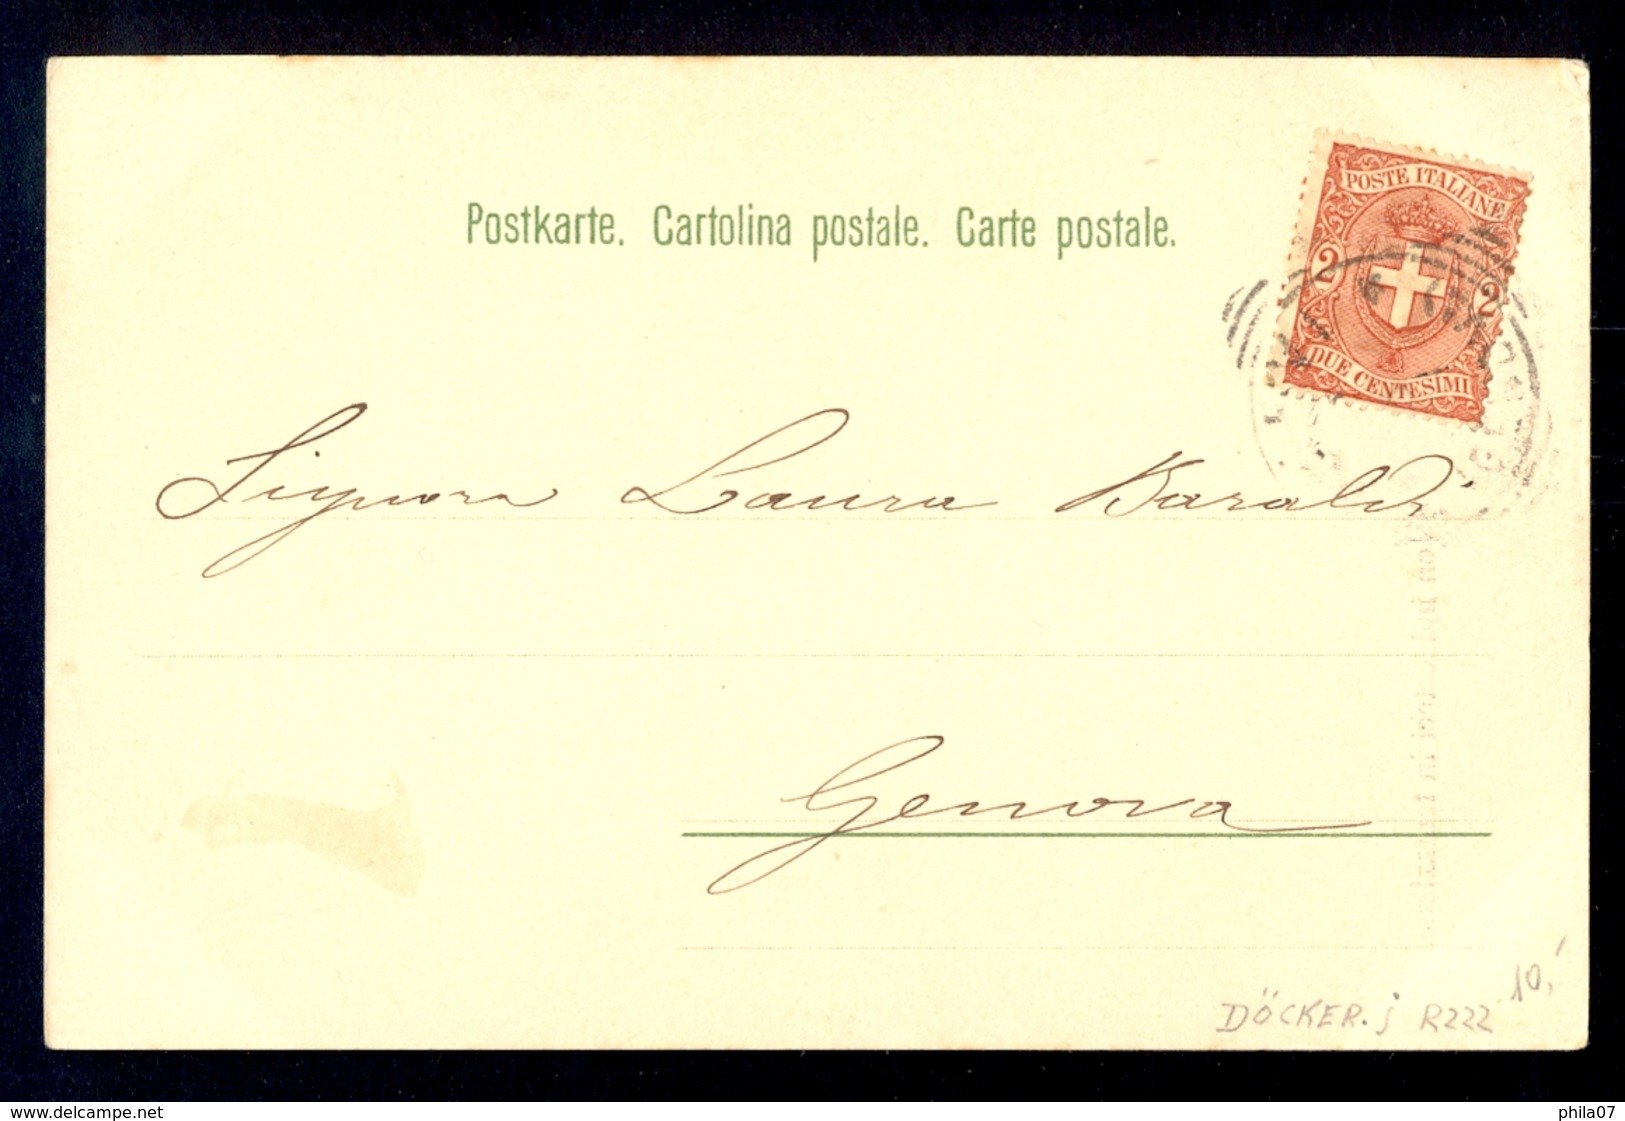 Postkarte. Cartolina postale. Carte postale.
POSTE ITALIANE
2 2
DUE CENTESIMI
Signora Laura Baraldi
Genova
10,-
DÖCKER. j R222
www.delcampe.net
phila07